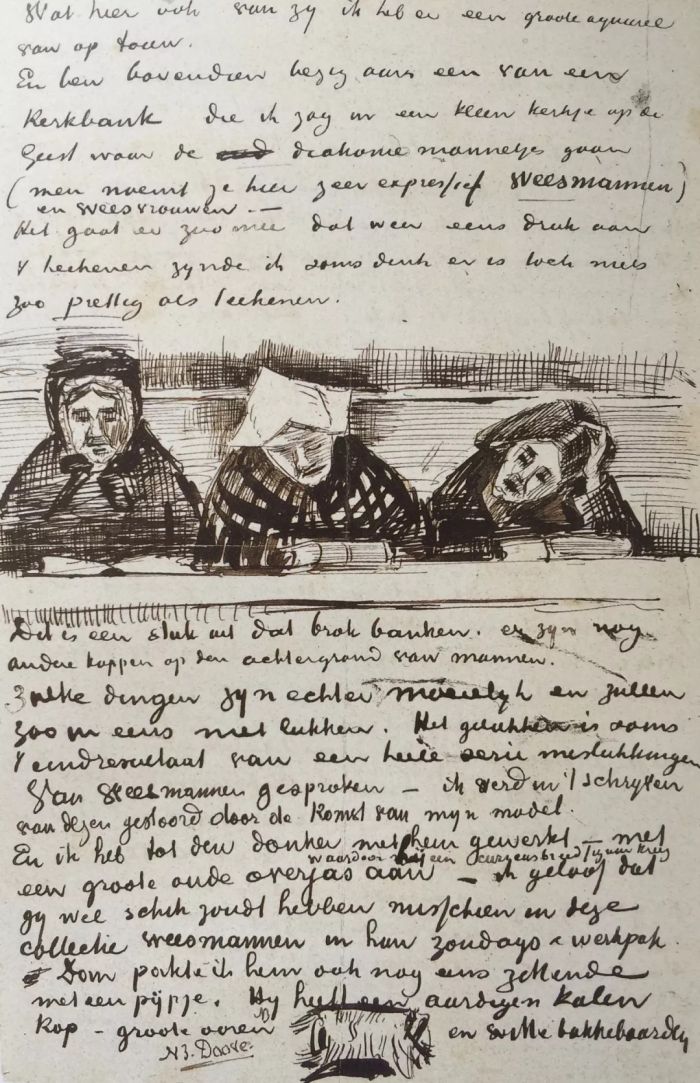 Wat hier ook van zy ik heb er een groote aquarel
van op touw.
En ben bovendien bezig aan een van een
Kerkbank die ik zag in een klein kerkje op de
Geest waar de diakonie mannetjes gaan
(men noemt ze hier zeer expressief Weesmannen)
en weesvrouwen –
Het gaat er zoo mee dat weer eens druk aan
't teekenen zynde ik soms denk er is toch niets
zoo prettig als teekenen.
Dit is een stuk uit dat brok banken. er zyn nog
andere koppen op den achtergrond van mannen.
Zulke dingen zyn echter moeielyk en zullen
zoo in eens niet lukken. Het gelukken is soms
't eindresultaat van een heele serie mislukkingen
Van Weesmannen gesproken – ik werd in 't schryven
van dezen gestoord door de komst van myn model.
En ik heb tot den donker met hem gewerkt – met
een groote oude overjas aan – ik geloof dat
gy wel schik zoudt hebben misschien in deze
collectie weesmannen in hun zondags & werkpak.
Dom pakte ik hem ook nog eens zittende
met een pijpje. Hy heeft een aardigen kalen
kop – groote ooren en witte bakkebaarden
N3. Doove.